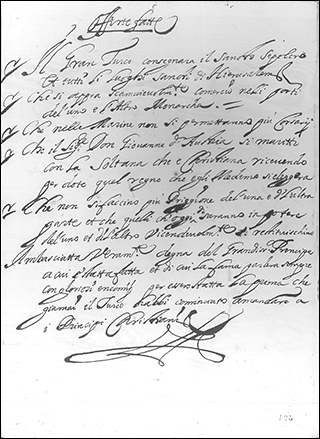 Offerte fatte
Il Gran Turco consegnara il Santo Sepolcro
Et tutti li luoghi Santi di Hierusalem
Che si appra scambievolm.te comercio nelli porti
dell'uno e l'altro Monarcha.
Che nelle Marine non si permettanno più Corsarij
Che il Sig.r Don Giovanni d'Austria si mariti
con la Soltana che è Christiana ricevendo
per dote quel regno che egli Medemo
Che non si faccino più Prigioni dell'una e l'altra
parte et che quelli ch'oggi saranno in potere
dell'uno et dell'altro vicendevolm.te si restituischino
Ambasciatta Veram.te degna del Grandiss.o Principe
a cui è stata fatta et di cui la fama parlarà sempre
con gloriosi encomij per essere stata la prima che
giamai il Turco habbi cominciato a mandare a
i Principi Christiani